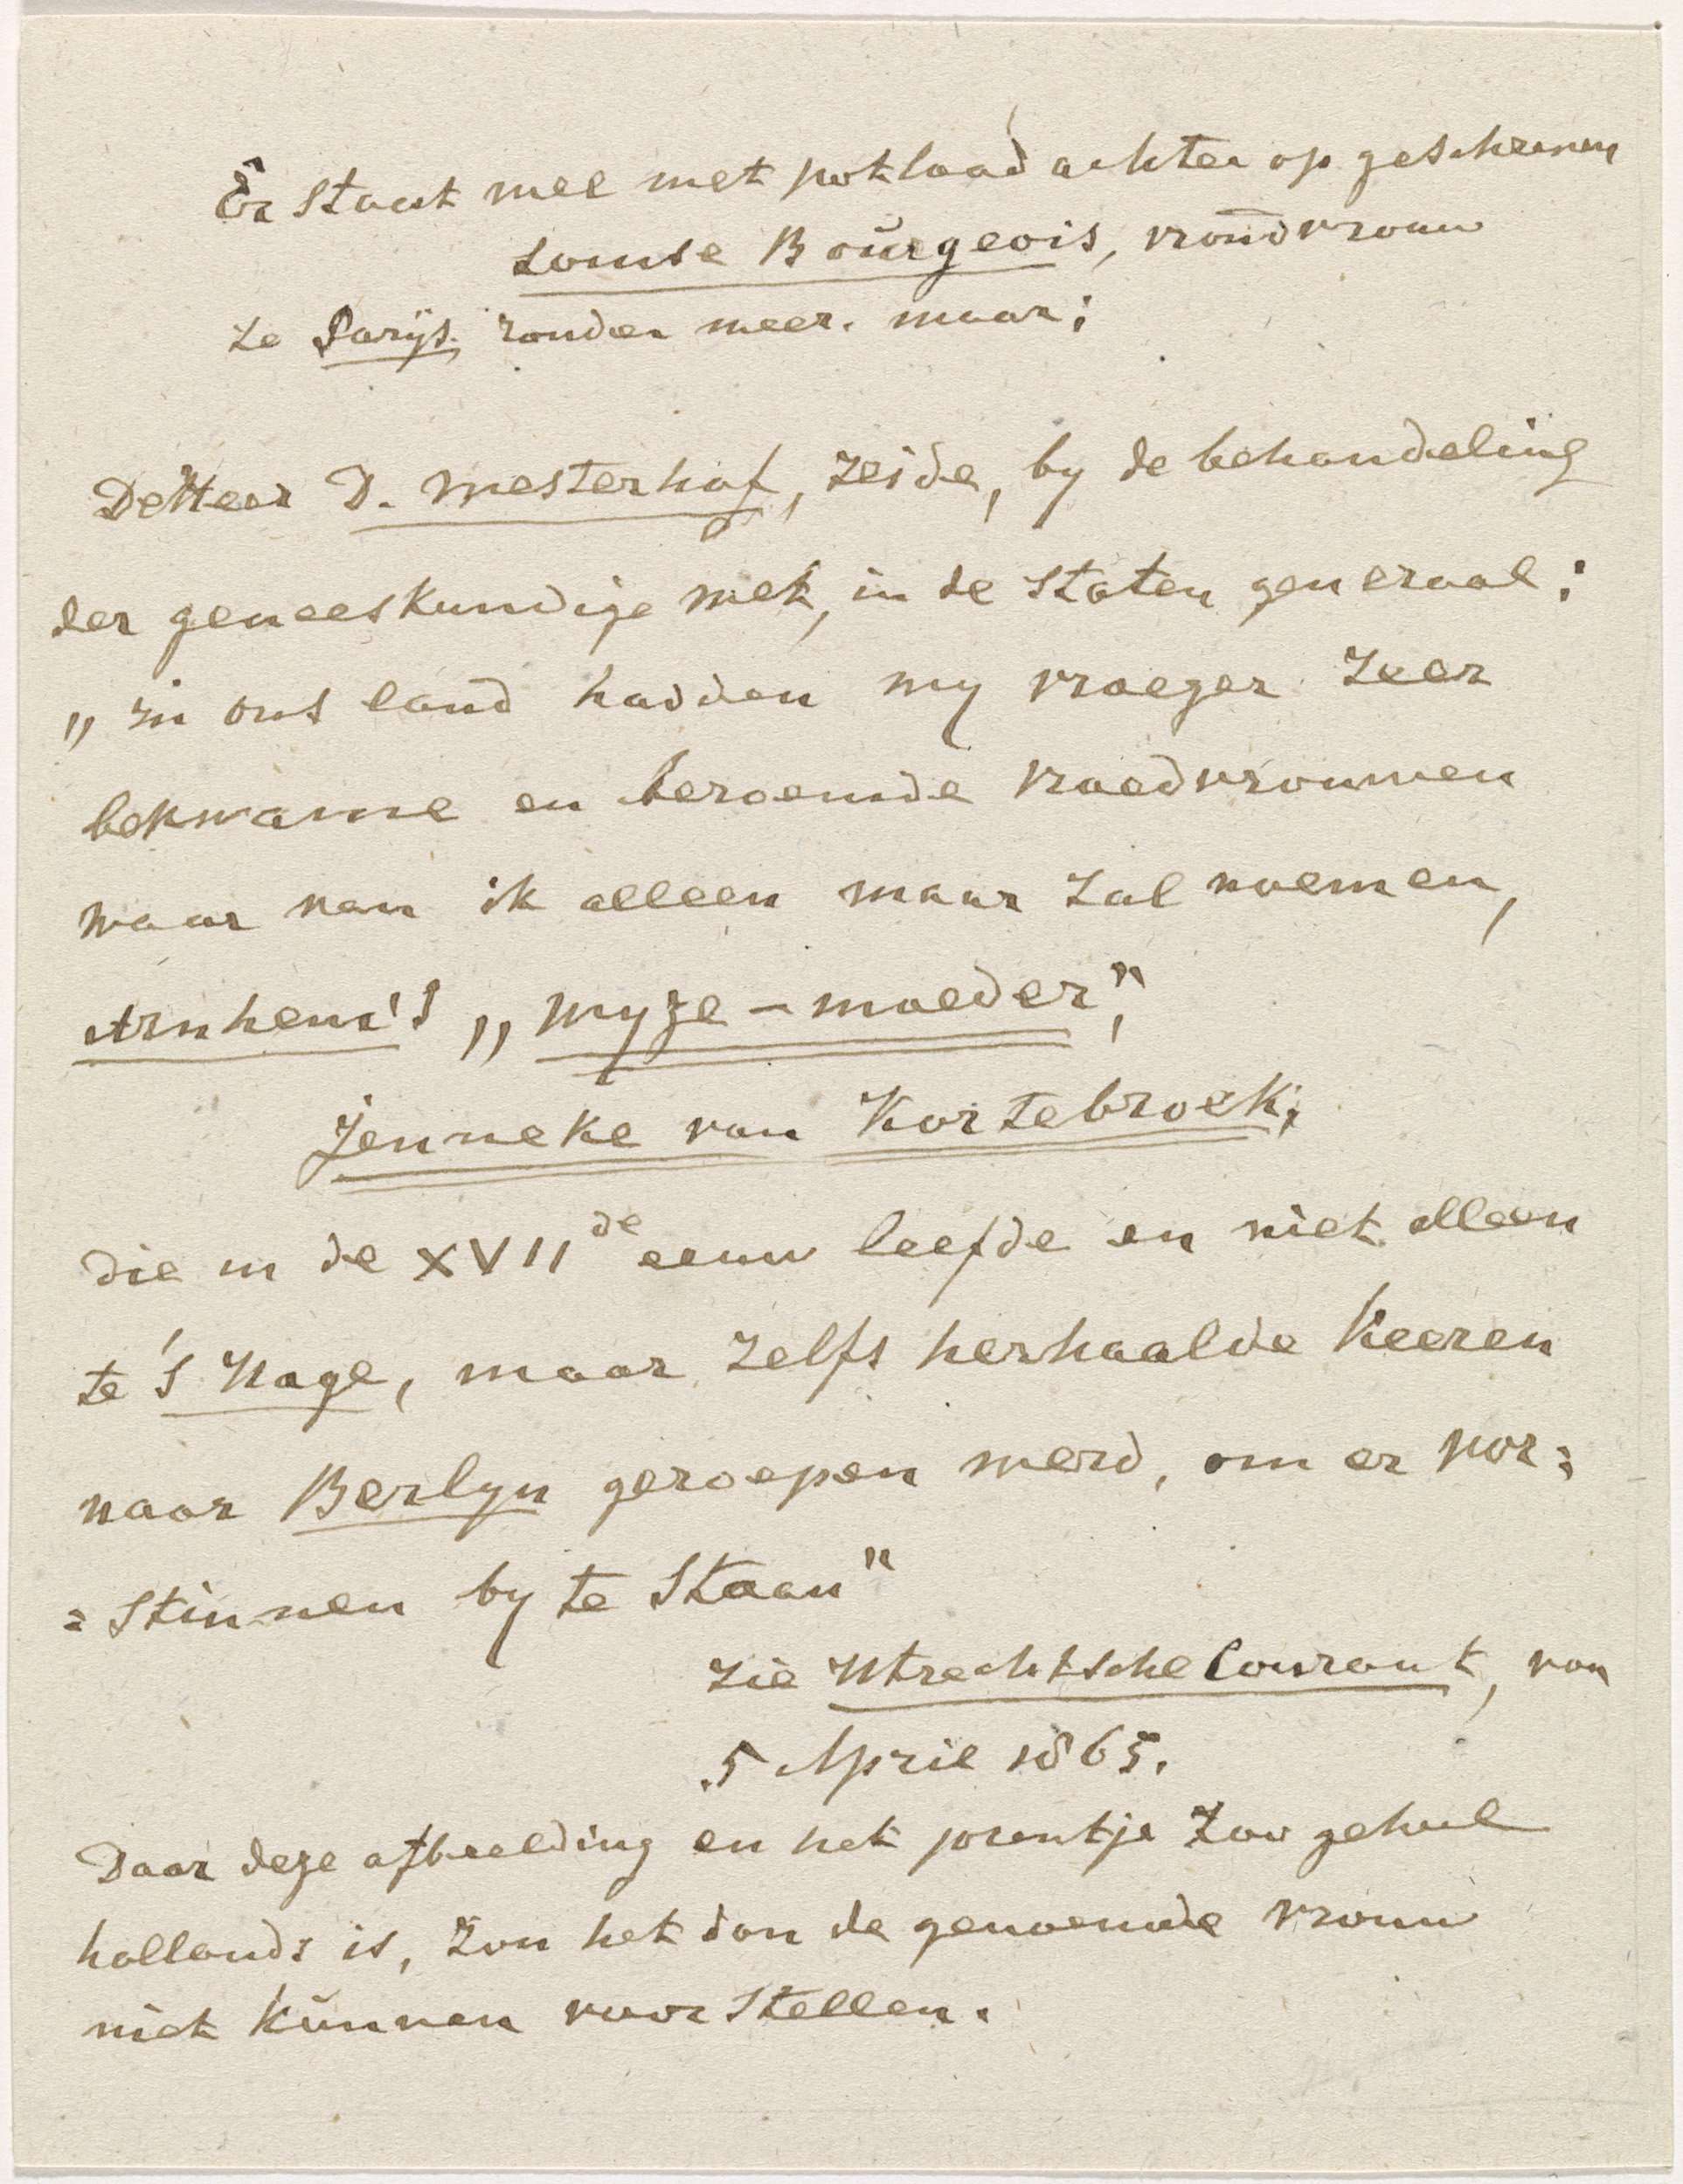 Er staat wel met potlood achter op geschreven
Louise Boŭrgeois, vroŭdvrouw
te Parÿs. zonder meer. maar:
De Heer D. Westerhof, zeide, by de behandeling
der geneeskundige wet, in de Staten generaal:
„in ons land hadden wy vroeger zeer
bekwame en beroemde vroedvrouwen
waar van ik alleen maar zal noemen,
Arnhem's „Wyze-moeder",
Jenneke van Kortebroek;
die in de XVIIde eeuw leefde en niet alleen
te 's Hage, maar zelfs herhaalde keeren
naar Berlyn geroepen werd, om er vor=
=stinnen by te staan"
zie Utrechtsche Courant, van
5 April 1865.
Daar deze afbeelding en het prentje zoo geheel
hollands is, zou het dan de genoemde vrouw
niet kŭnnen voorstellen.